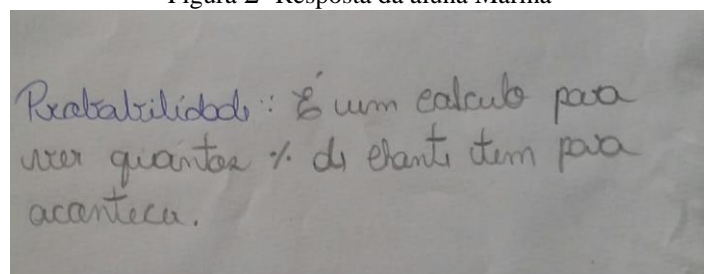 Figura 2- Resposta da aluna Marina
Probabilidade: É um calculo para
ver quantos % de chante tem para
acontecer.